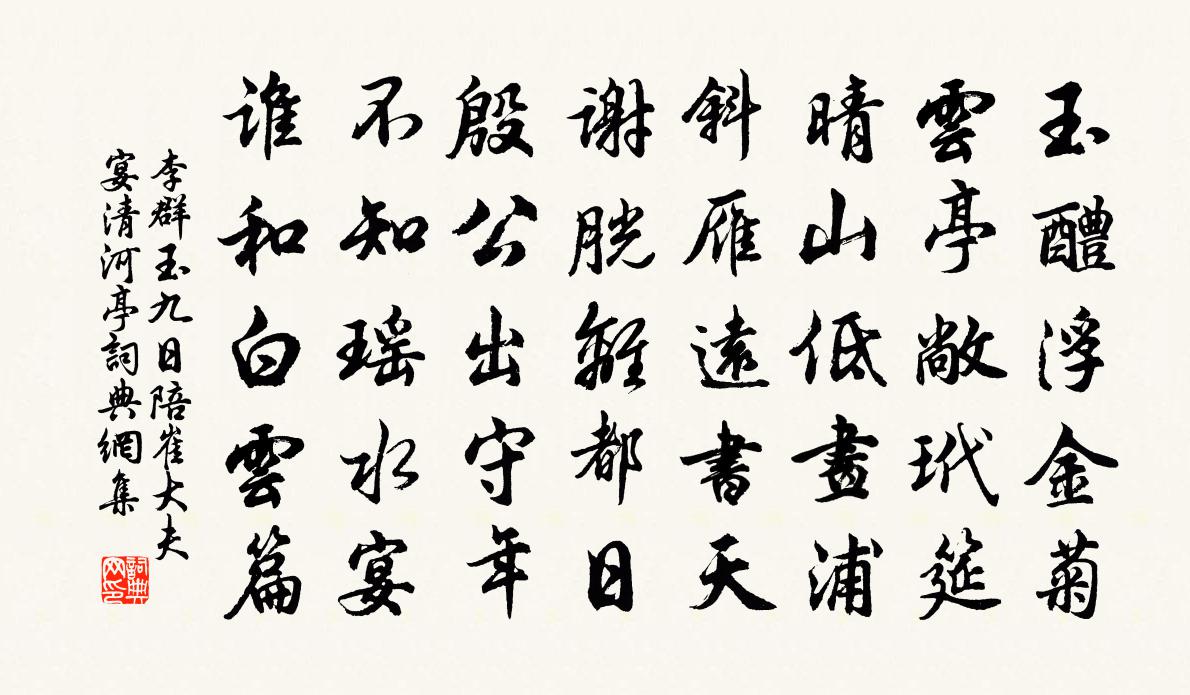 玉醴浮金菊
雲亭敞玳筵
晴山低畫浦
斜雁遠書天
謝朓離都日
殷公出守年
不知瑶水宴
谁和白雲篇
李群玉九日陪崔大夫
宴清河亭詞典網集
詞典网印